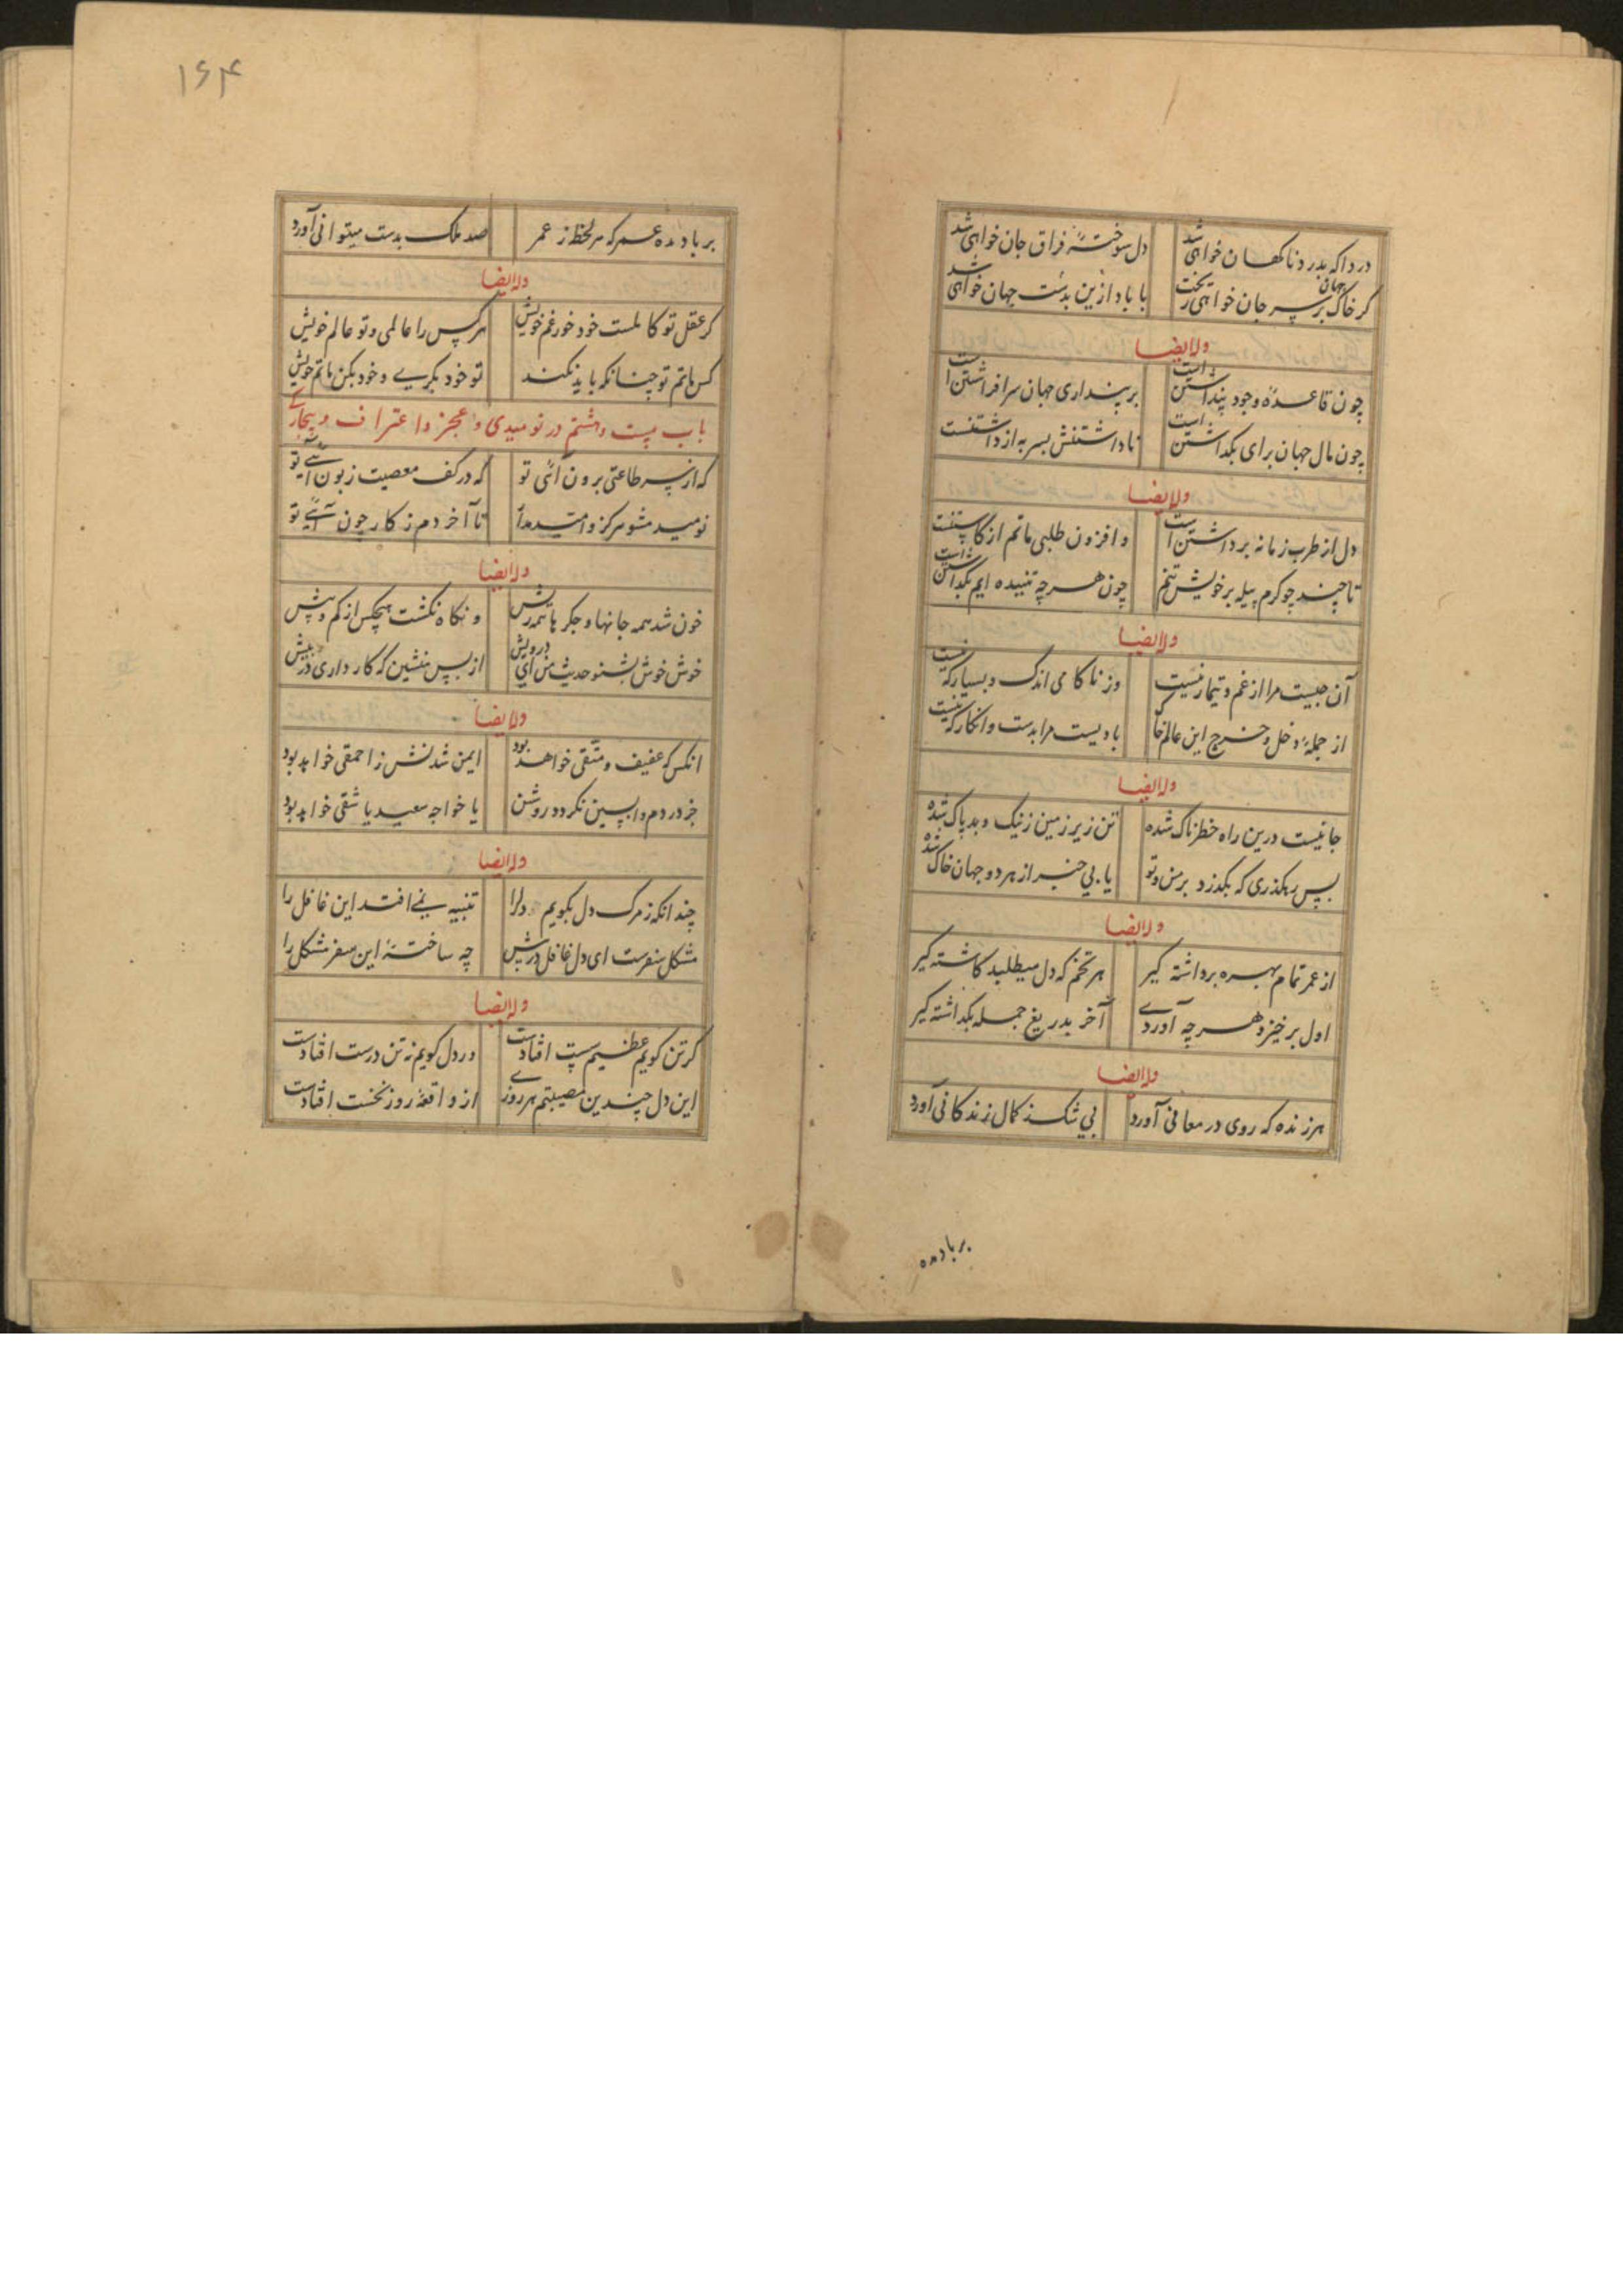 دردا که بدرد ناکهان خواهی شد دل سوختهٔ فراق جان خواهی شد
کر خاک جهان بر سر جان خواهی ریخت با باد ازین بدست جهان خواهی شد
وله ایضا
چون قاعدهٔ وجود پنداشتن است بر پنداری جهان سرافراشتن است
چون مال جهان برای بکداشتن است ناداشتنش بسر به از داشتنست
وله ایضا
دل از طرب زمانه برداشتن است و افزون طلبی ماتم از کاستنست
تا چند چو کرم پیله بر خویش تنم چون هر چه تنیده ایم بکداشتن است
وله ایضا
آن چیست مرا از غم و تیمار که نیست وز ناکامی اندک و بسیار که نیست
از جملهٔ دخل و خرج این عالم خاک بادیست مرا بدست وانکار که نیست
وله ایضا
جانیست درین راه خطرناک شده تن زیر زمین ز نیک و بد پاک شده
بس رهکذری که بکذرد بر من و تو یا بی خبر از هر دو جهان خاک شده
وله ایضا
از عمر تمام بهره برداشته کیر هر تخم که دل میطلبد کاشته کیر
اول برخیز و هر چه آوردی آخر بدریغ جمله بکداشته کیر
وله ایضا
هر زنده که روی در معانی آورد بی شک ز کمال زندکانی آورد
بر باد مده
۱۶۴
بر باد مده عمر که هر لحظه ز عمر صد ملک بدست میتوانی آورد
وله ایضا
کر عقل تو کاملست خود خور غم خویش هر کس را عالمی و تو عالم خویش
کس ماتم تو چنانکه باید نکند تو خود بکری و خود بکن ماتم خویش
باب بیست و هشتم در نومیدی و عجز و اعتراف و بیچارکی
که از پس طاعتی برون آئی تو که در کف معصیت زبون آئی تو
نومید مشو هرکز و امید مدار تا آخر دم ز کار چون آئی تو
وله ایضا
خون شد همه جانها و جکرها همه ریش وآکاه نکشت هیچکس از کم و بیش
خوش خوش بشنو حدیث من ای درویش از پس منشین که کار داری در پیش
وله ایضا
انکس که عفیف و متقی خواهد بود ایمن شدنش ز احمقی خواهد بود
جز در دم واپسین نکردد روشن یا خواجه سعید یا شقی خواهد بود
وله ایضا
چندانکه ز مرک دل بکویم دل را تنبیه نمی افتد این غافل را
مشکل سفرست ای دل غافل در پیش چه ساختهٔ این سفر مشکل را
وله ایضا
کر تن کویم عظیم سست افتادست ور دل کویم نه تن درست افتادست
این دل چندین مصیبتم هر روزی از واقعهٔ روز نخست افتادست